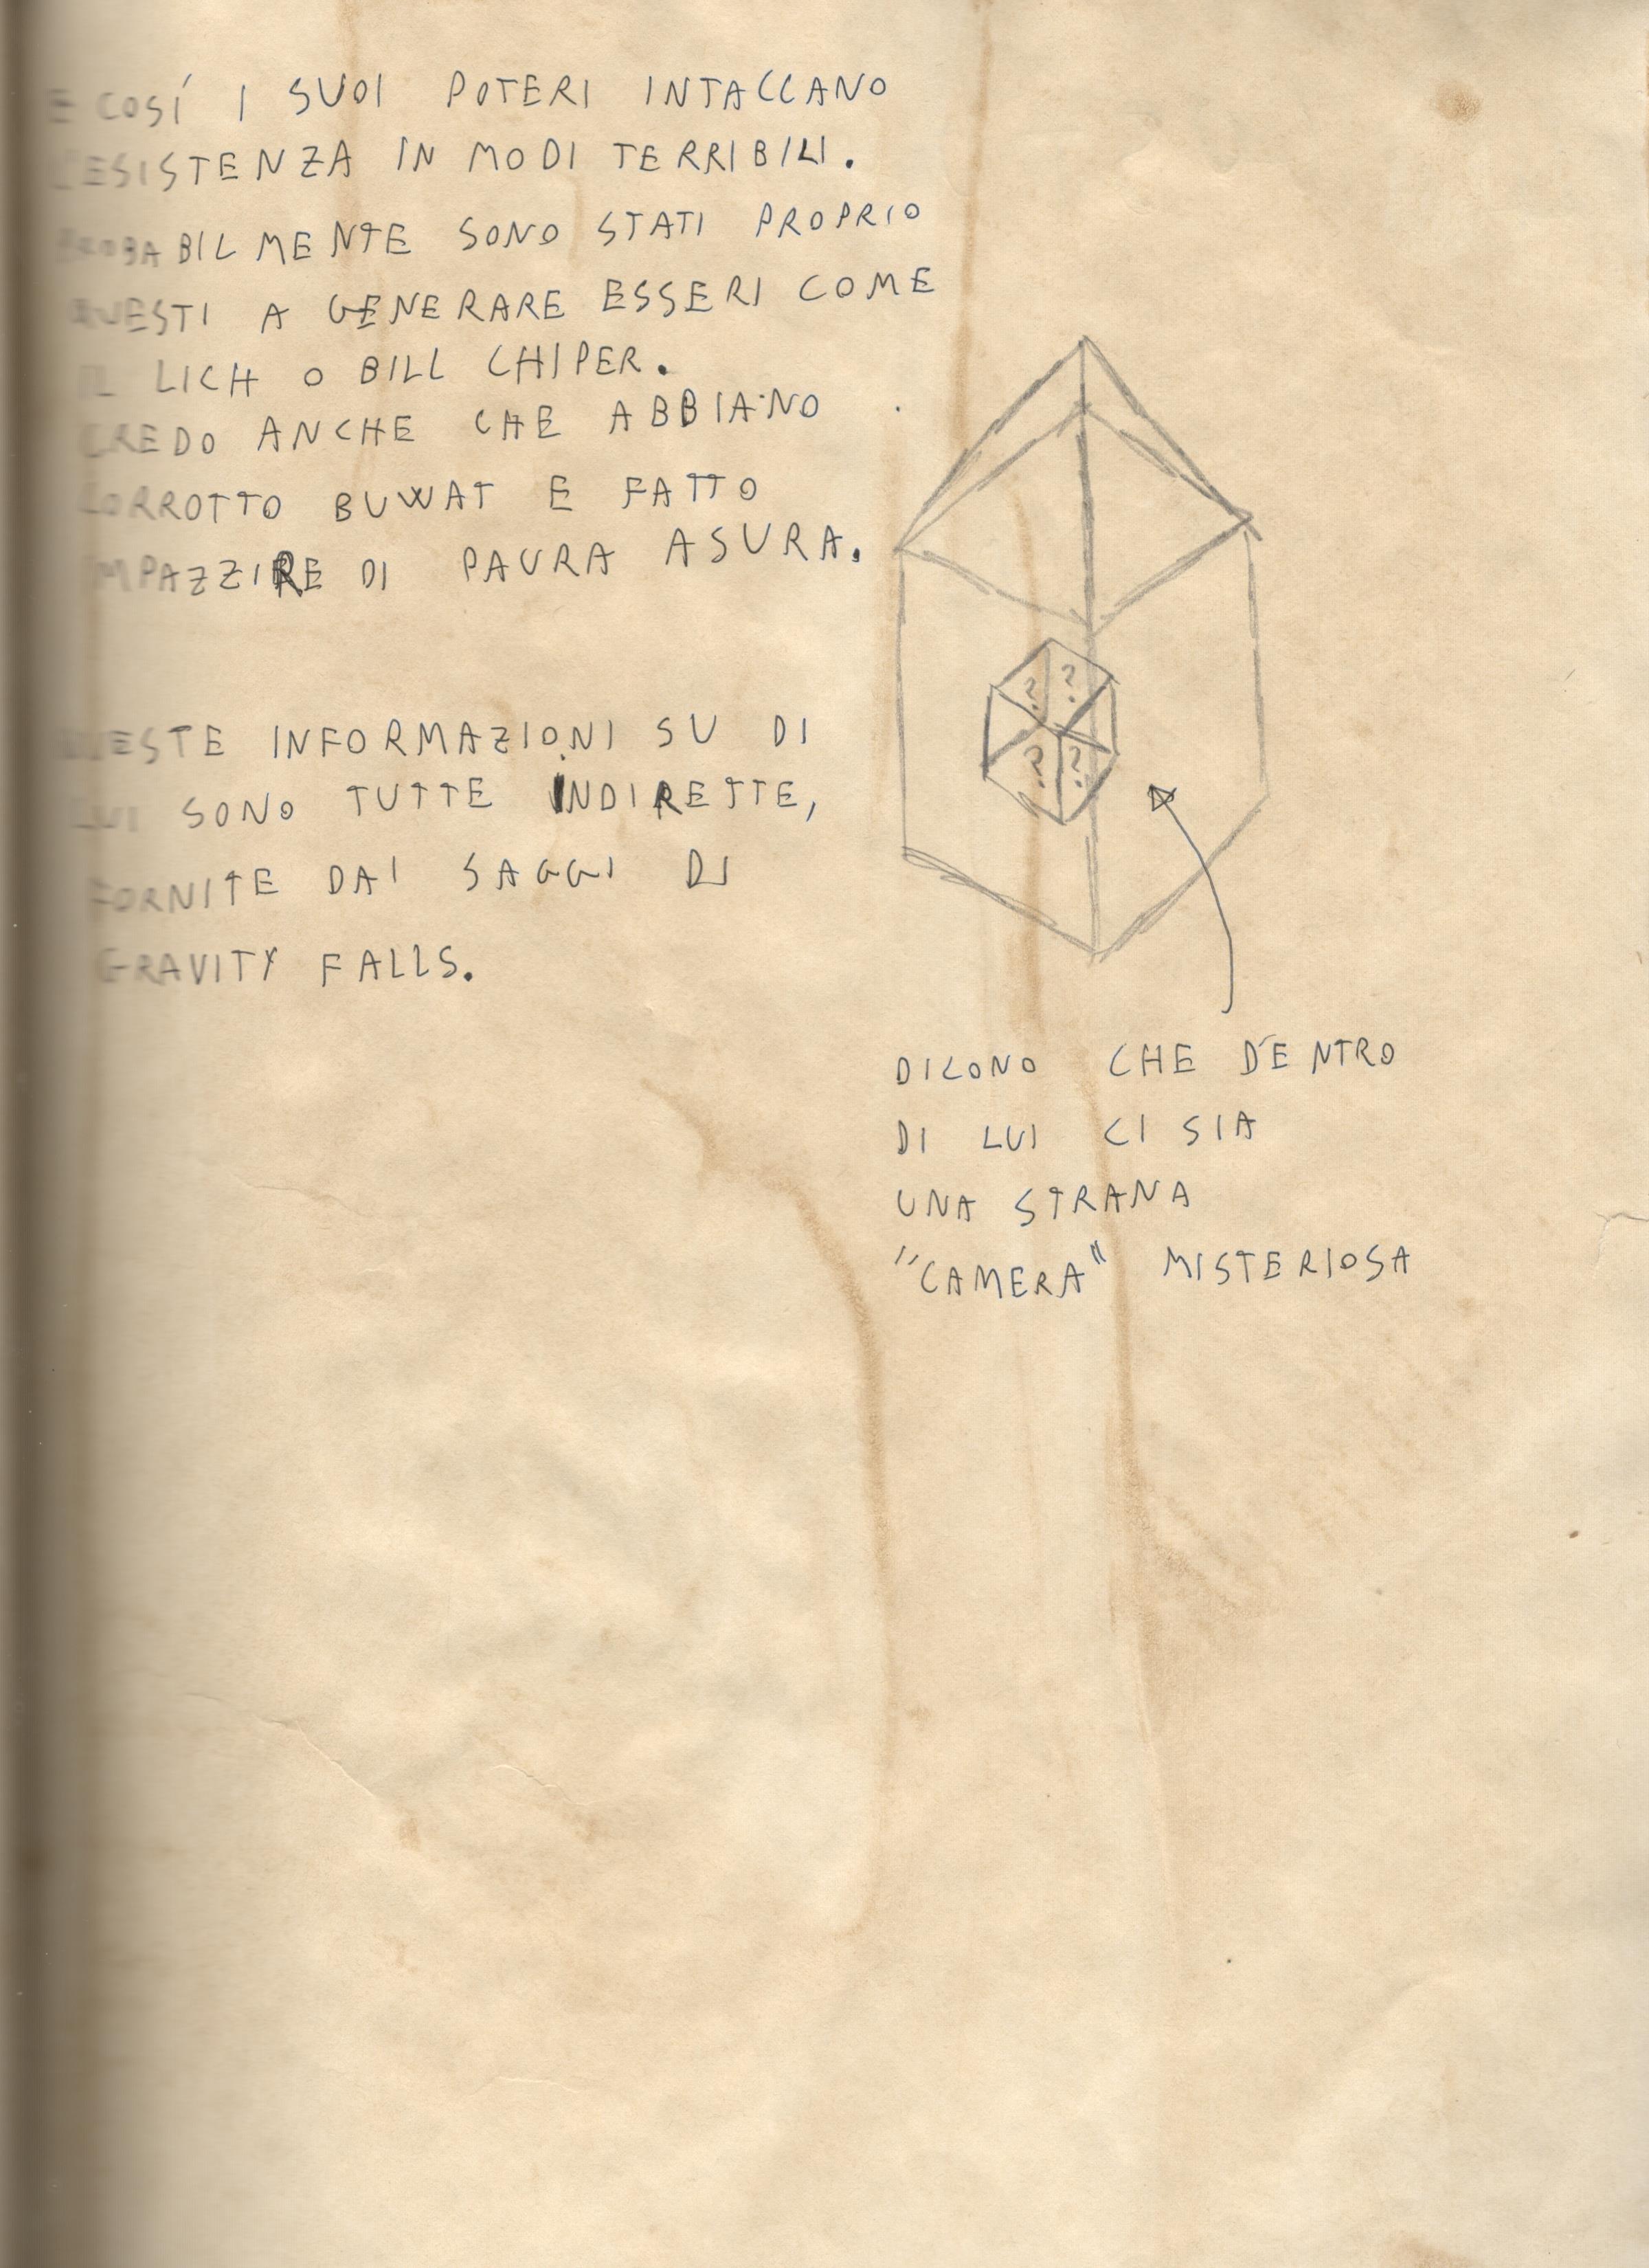 E COSÍ I SUOI POTERI INTACCANO
L'ESISTENZA IN MODI TERRIBILI.
PROBABILMENTE SONO STATI PROPRIO
QUESTI A GENERARE ESSERI COME
IL LICH O BILL CHIPER.
CREDO ANCHE CHE ABBIANO
CORROTTO BUWAT E FATTO
IMPAZZIRE DI PAURA ASURA.
QUESTE INFORMAZIONI SU DI
LUI SONO TUTTE INDIRETTE,
FORNITE DAI SAGGI DI
GRAVITY FALLS.
? ?
? ?
DICONO CHE DENTRO
DI LUI CI SIA
UNA STRANA
"CAMERA" MISTERIOSA